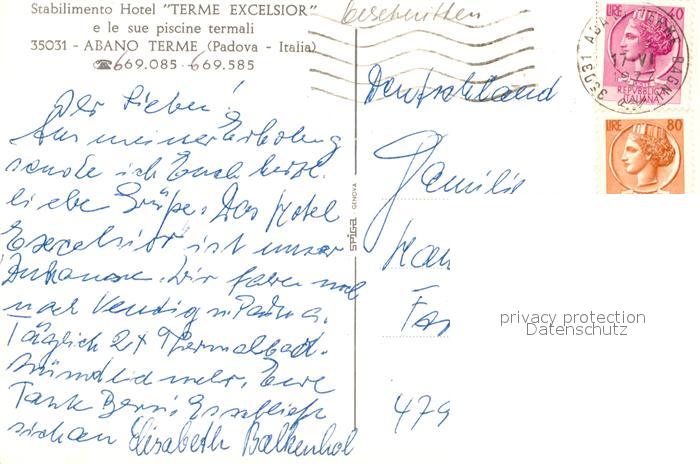 Stabilimento Hotel "TERME EXCELSIOR"
e le sue piscine termali
35031 - ABANO TERME (Padova - Italia)
☎669.085 - 669.585
beschritten
LIRE 40
REPVBBLICA
ITALIANA
35031 ABANO TERME BAGNI
17-VI
LIRE 80
Ihr Lieben!
Aus meiner Erholung
sende ich Euch herzl.
liebe Grüße. Das Hotel
Excelsior ist unser
Zuhause. Wir fahren noch
nach Venedig u Padua.
Täglich 2x Thermalbad.
mündlich mehr, Eure
Tante Berni. Es schließt
sich an Elisabeth Balkenhol
SPIGA GENOVA
Deutschland
Familie
479
privacy protection
Datenschutz